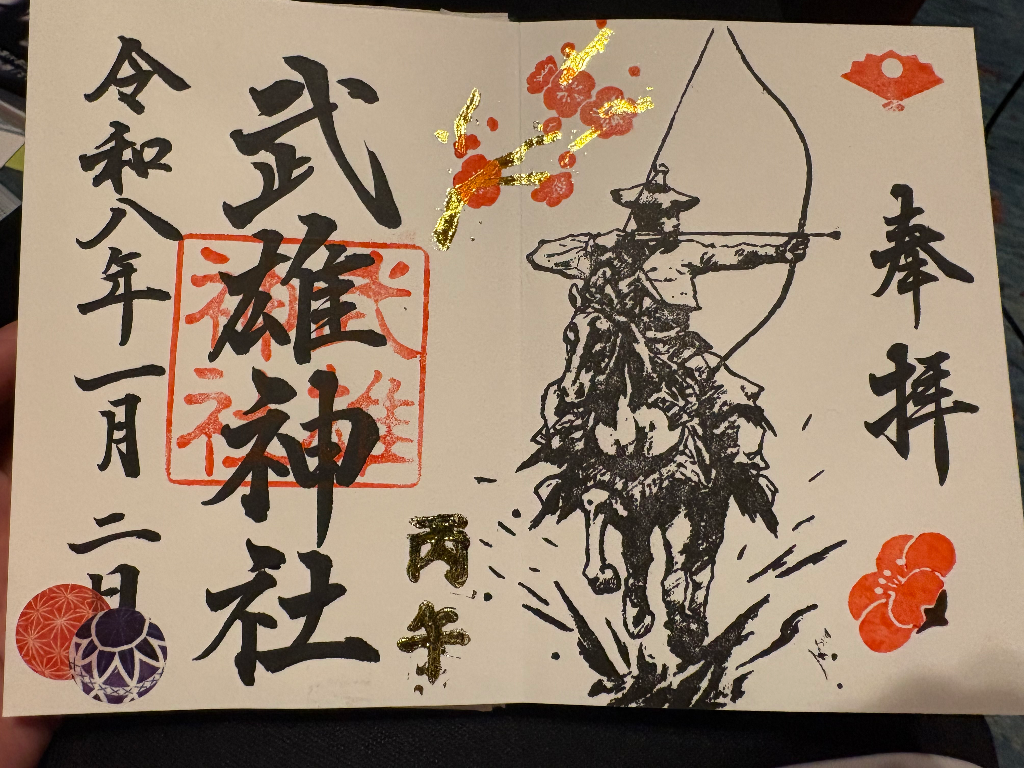 奉拝
丙午
武雄神社
武雄神社
令和八年一月二日